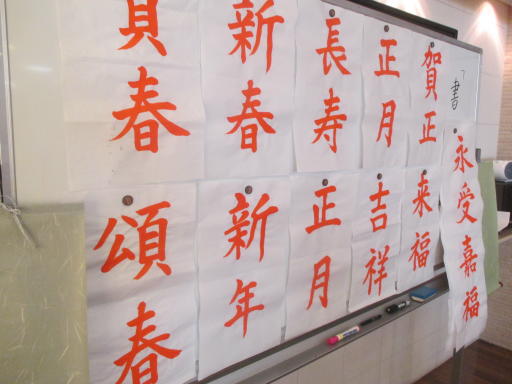 書
永受嘉福
賀正
来福
正月
吉祥
長寿
正月
新春
新年
賀春
頌春